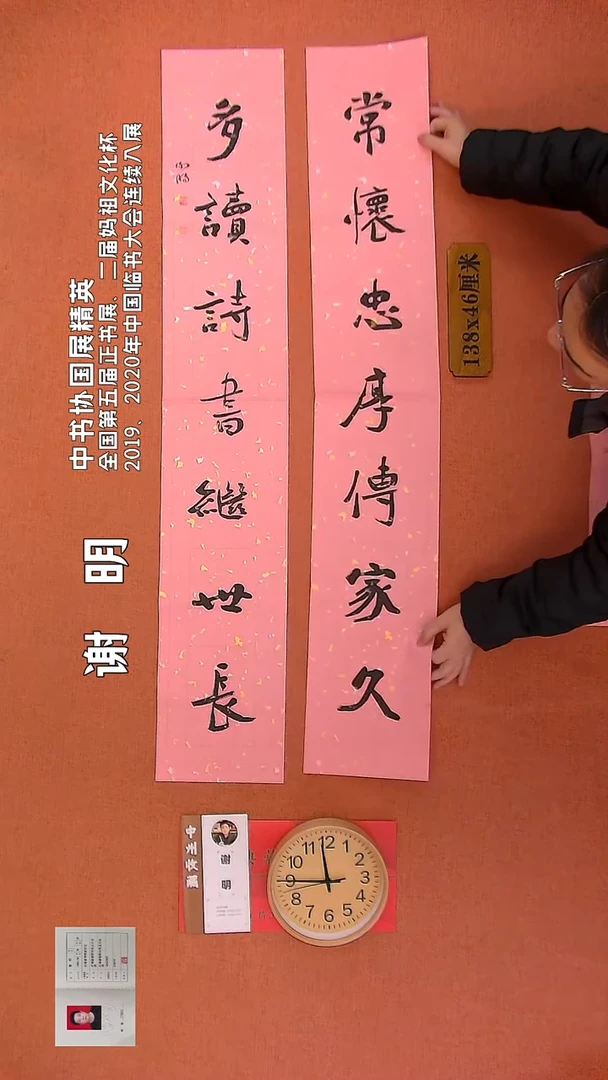 常懷忠厚傳家久
多讀詩書繼世長
138x46厘米
中书协国展精英
全国第五届正书展、二届妈祖文化杯
2019、2020年中国临书大会连续入展
谢 明
谢 明
12
1
2
3
4
5
6
7
8
9
10
11